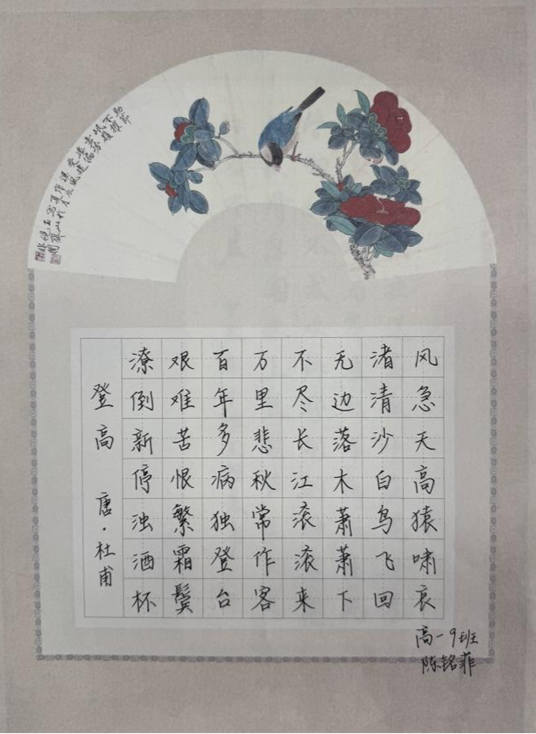 风急天高猿啸哀
渚清沙白鸟飞回
无边落木萧萧下
不尽长江滚滚来
万里悲秋常作客
百年多病独登台
艰难苦恨繁霜鬓
潦倒新停浊酒杯
登高 唐·杜甫
高一9班
陈铭菲